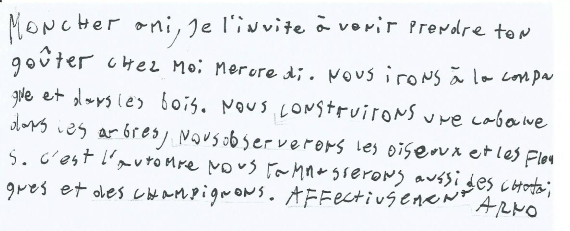 MONCHER ami, Je l'invite à venir prendre ton
goûter chez Moi Mercredi. NOUS irONS à la campa
gne et dans les bois. NOUS CONStruirONS une cabane
dans les arbres, NOUSobserverons les oiseaux et les Fleu
S. C'est l'automne NOUS ramasserons aussi des chatai
gnes et des champignons. AFFectivsement ARNO